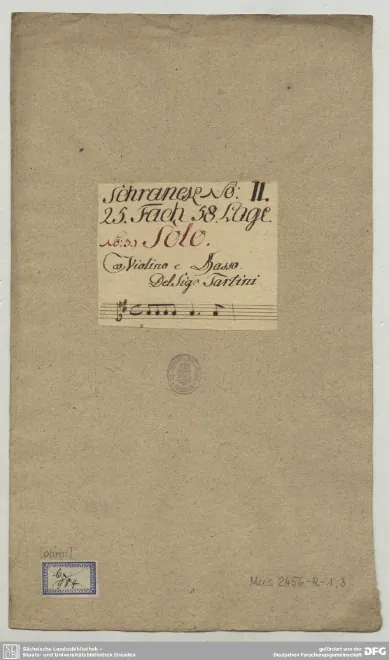 Schranck No: II.
25. Fach 58. Lage.
No: 3.) Solo.
Violino e Basso.
Del Sigr Tartini
[olim:]
Mus. 2456-R-1,3
Sächsische Landesbibliothek -
Staats- und Universitätsbibliothek Dresden
gefördert von der
Deutschen Forschungsgemeinschaft
DFG